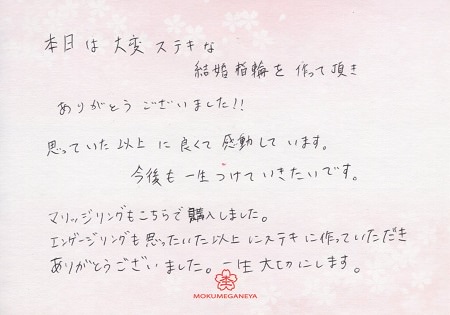 本日は大変ステキな
結婚指輪を作って頂き
ありがとうございました!!
思っていた以上に良くて感動しています。
今後も一生つけていきたいです。
マリッジリングもこちらで購入しました。
エンゲージリングも思ったいた以上にステキに作っていただき
ありがとうございました。一生大切にします。
MOKUMEGANEYA